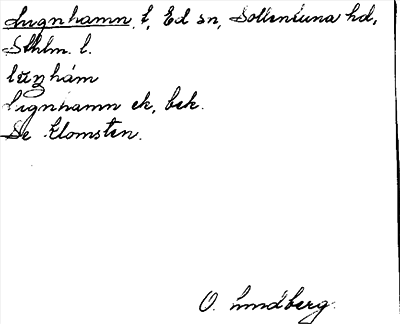 Lugnhamn t, Ed sn, Sollentuna hd,
Sthlm. l.
Lugnhamn ek, bek.
Se Klomsten.
O. Lundberg.